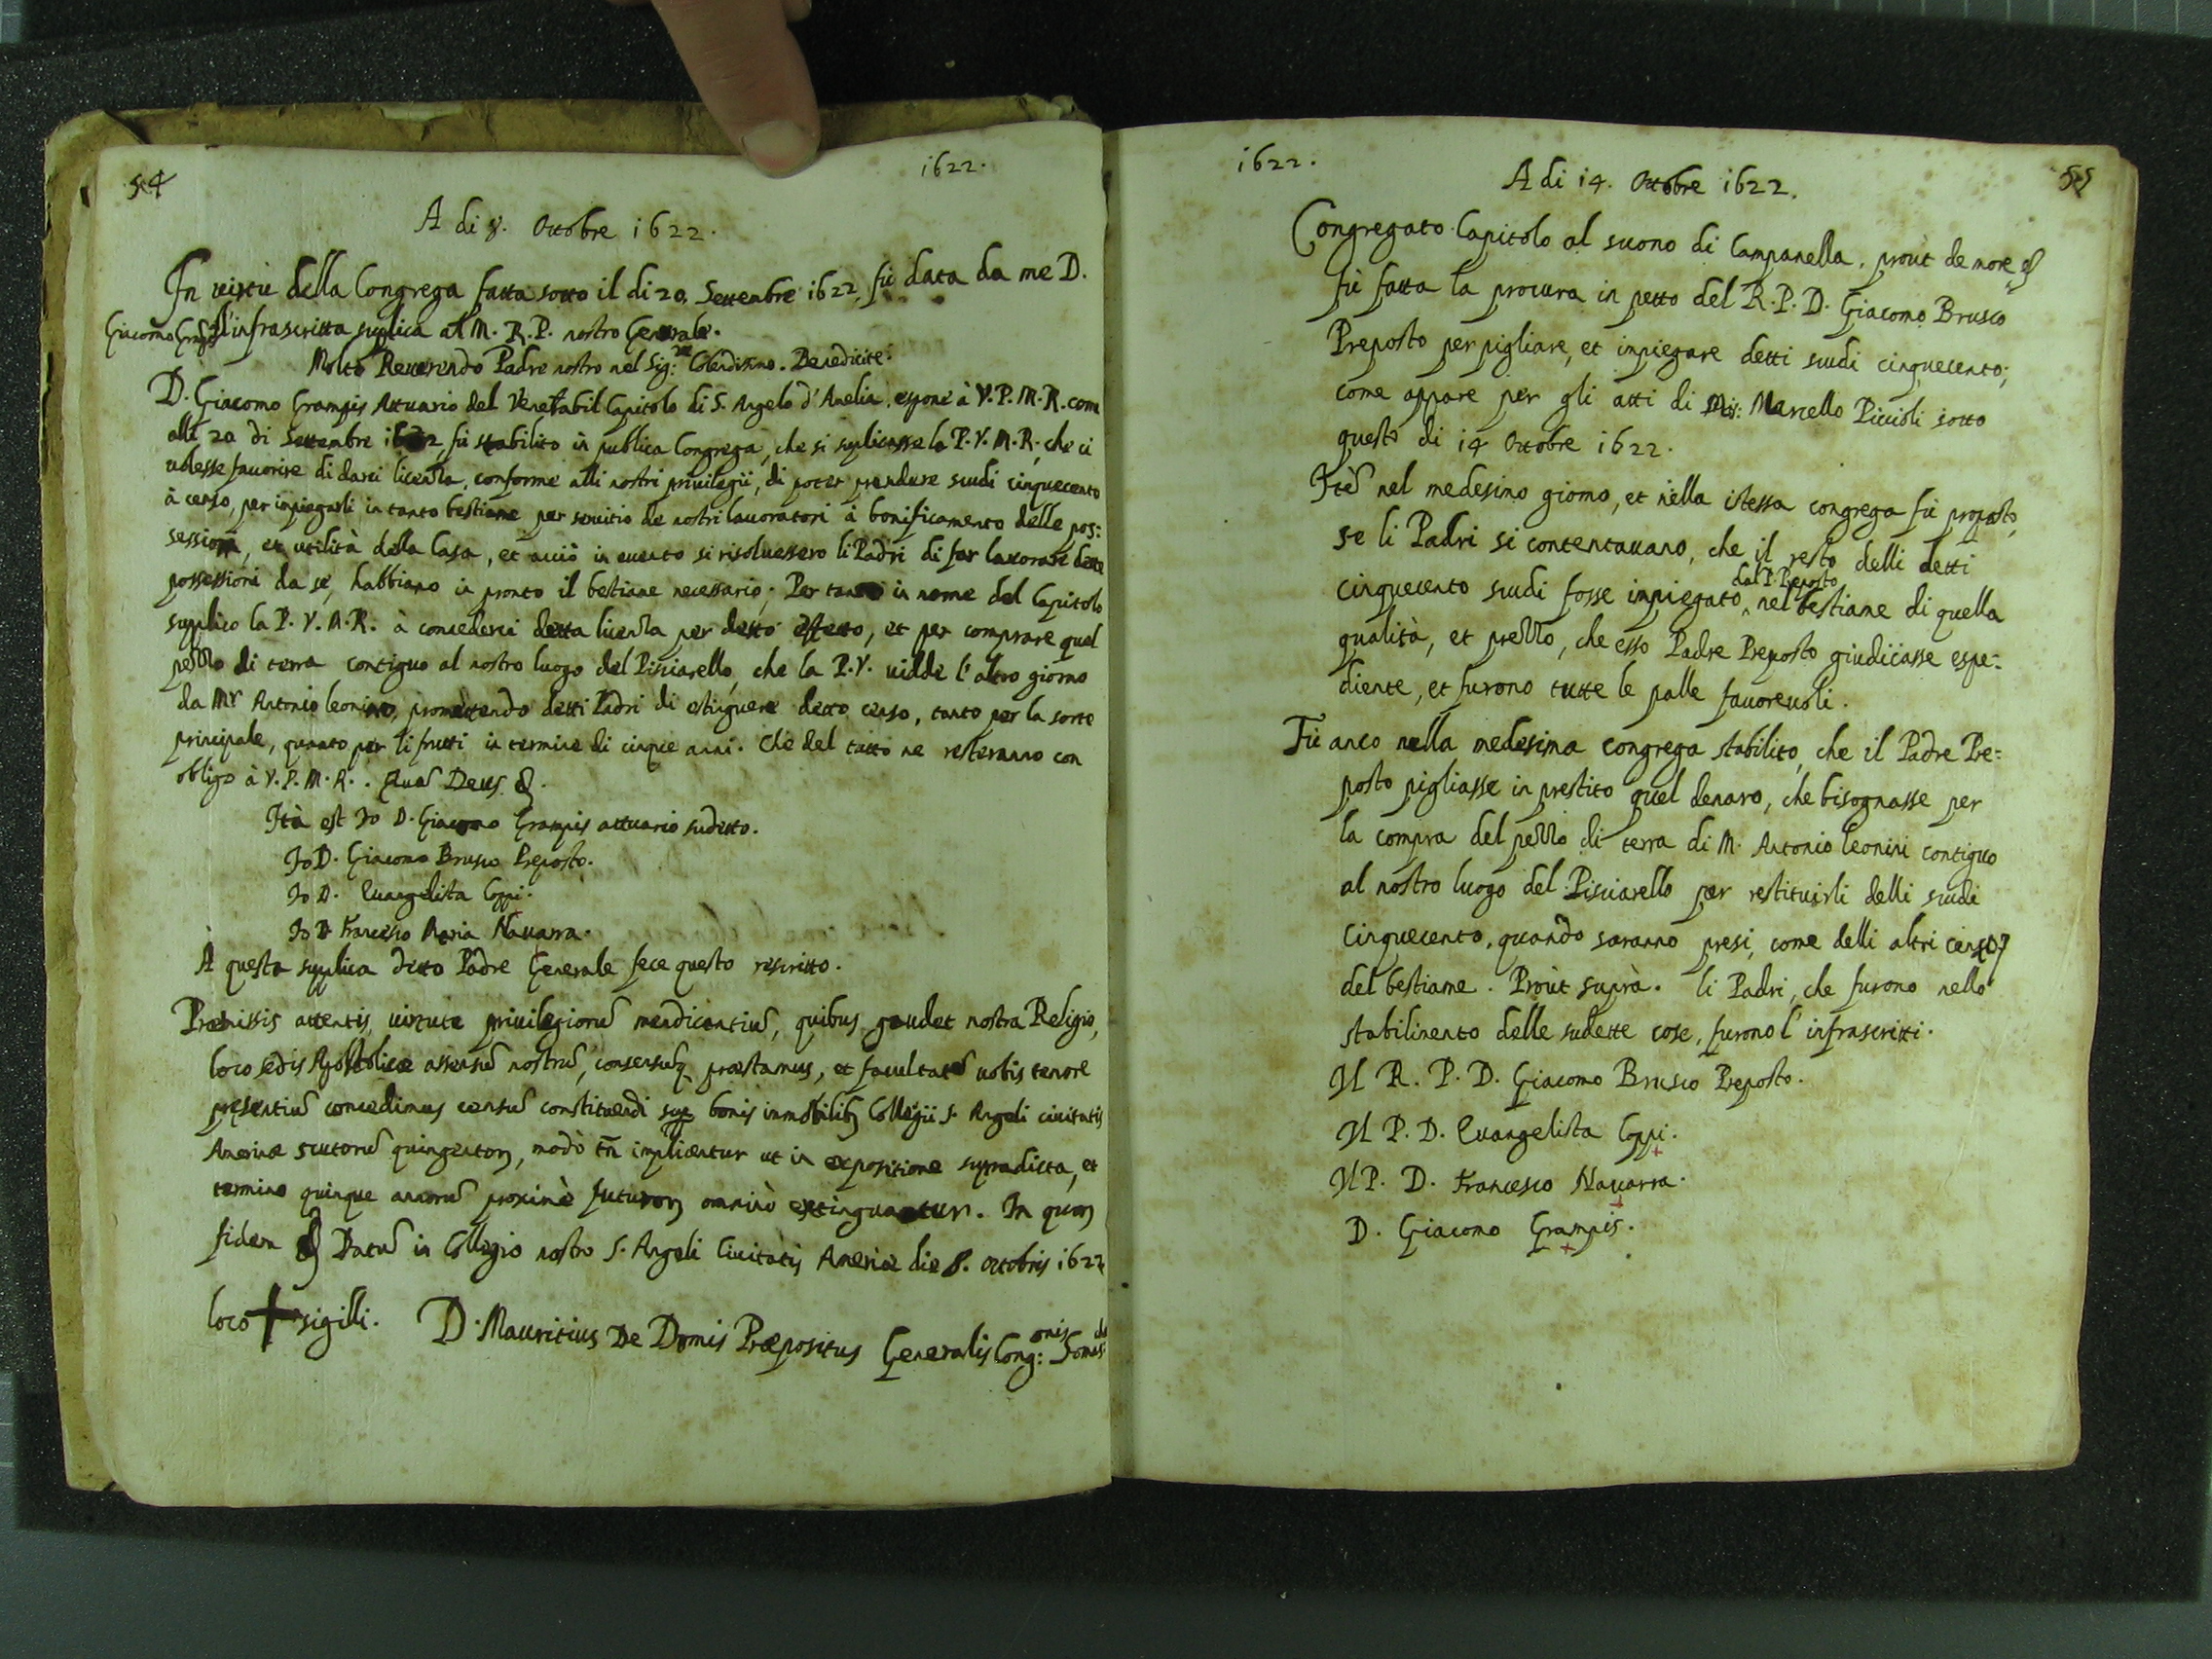 54
1622.
A di 8. Ottobre 1622.
In virtù della Congrega fatta sotto il di 20. Settembre 1622, fù data da me D.
Giacomo l'infrascritta suplica al M. R. P. nostro Generale.
Molto Reverendo Padre nostro nel Sig:re Colendissimo. Benedicite.
D. Giacomo Grampis Attuario del Venerabil Capitolo di S. Angelo d'Amelia, espone à V. P. M. R. come
alli 20 di Settembre 1622, fù stabilito in publica Congrega, che si suplicasse la P. V. M. R., che ci
volesse favorire di darci licenza, conforme alli nostri privilegii, di poter prendere scudi cinquecento
à censo, per impiegarli in tanto bestiame per servitio de nostri lavoratori à bonificamento delle pos:
sessioni, et utilità della Casa, et acciò in evento si risolvessero li Padri di far lavorare dette
possessioni da sé, habbiano in pronto il bestiame necessario; Per tanto in nome del Capitolo
supplico la P. V. M. R. à concederci detta licenza per detto effetto, et per comprare quel
pezzo di terra contiguo al nostro luogo del Pisciarello, che la P. V. vidde l'altro giorno
da Mr Antonio leonino, promettendo detti Padri di estinguere detto censo, tanto per la sorte
principale, quanto per li frutti in termine di cinque anni. Che del tutto ne resteranno con
obligo à V. P. M. R. . Quā Deus &.
Ità est Io D. Giacomo Grampis attuario sudetto.
Io D. Giacomo Brusco Preposto.
Io D. Evangelista Coppi.
Io D. Francesco Maria Navarra.
A questa supplica detto Padre Generale fece questo rescritto.
Præmissis attentis, virtute privilegiorū mendicantiū, quibus gaudet nostra Religio,
loco sedis Apostolicæ assensū nostrū, consensūq præstamus, et facultatē vobis tenore
præsentiū concedimus censū constituendi sup bonis immobilibꝫ Collegii S. Angeli civitatis
Ameriæ scutorū quingentoꝝ, modò tn̄ implicentur ut in expositione supradicta, et
termino quinque annorū proximè futuroꝝ omninò extinguantur. In quoꝝ
fidem & Datū in Collegio nostro S. Angeli Civitatis Ameriæ die 8. Octobris 1622
loco + sigilli. D. Mauritius De Domis Præpositus Generalis Cong:onis Somas:
1622.
55
A di 14. Ottobre 1622.
Congregato Capitolo al suono di Campanella, prout de more &
fù fatta la procura in petto del R. P. D. Giacomo Brusco
Preposto per pigliare, et inpiegare detti scudi cinquecento;
come appare per gli atti di Marcello Piccioli sotto
questo di 14 Ottobre 1622.
Itē nel medesimo giorno, et nella istessa congrega fù proposto,
se li Padri si contentavano, che il resto delli detti
cinquecento scudi fosse impiegato dal P. Preposto nel bestiame di quella
qualità, et prezzo, che esso Padre Preposto giudicasse espe:
diente, et furono tutte le palle favorevoli.
Fù anco nella medesima congrega stabilito, che il Padre Pre:
posto pigliasse in prestito quel denaro, che bisognasse per
la compra del pezzo di terra di M. Antonio leonini contiguo
al nostro luogo del Pisciarello per restituirli delli scudi
Cinquecento, quando saranno presi, come delli altri
del bestiame. Proùt suprà. li Padri, che furono nello
stabilimento delle sudette cose, furono l'infrascritti.
Il R. P. D. Giacomo Brusco Preposto.
Il P. D. Evangelista Coppi.
Il P. D. Francesco Navarra.
D. Giacomo Grampis.